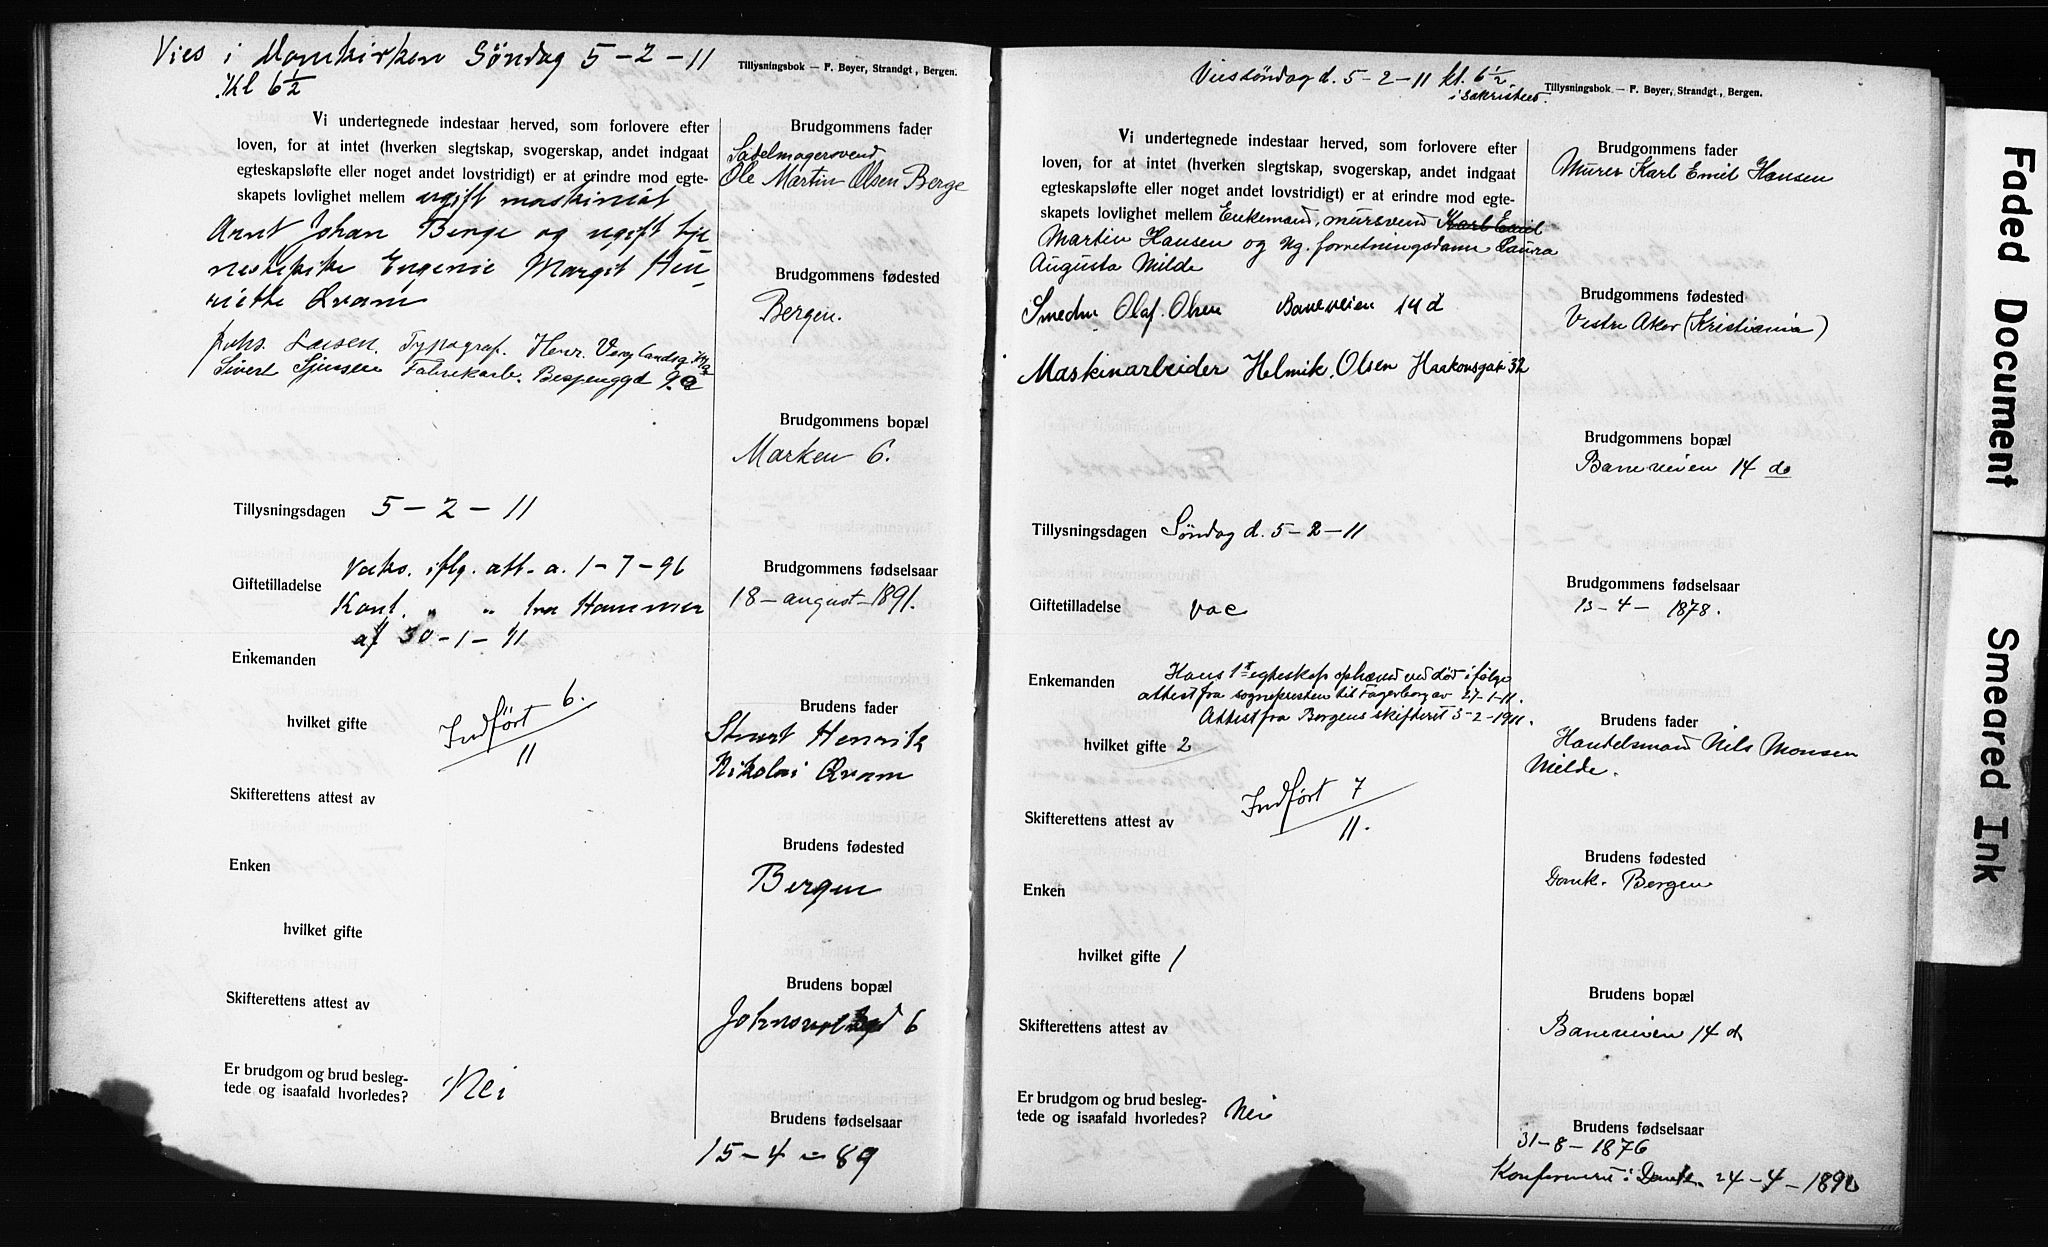 Vies i Domkirken Søndag 5-2-11
Kl 6 1/2
Tillysningsbok — F. Beyer, Strandgt., Bergen.
Vi undertegnede indestaar herved, som forlovere efter
loven, for at intet (hverken slegtskap, svogerskap, andet indgaat
egteskapsløfte eller noget andet lovstridigt) er at erindre mod egte-
skapets lovlighet mellem ugift maskinist
Arnt Johan Berge og ugift tje-
nestepike Eugenie Margit Hen-
riette Qvam
Johs. Larsen. Typograf. Henr. Vergelandsg.
Sivert Fabrikarb. 9a
Tillysningsdagen 5-2-11
Vaks. iflg. att. a. 1-7-96
Giftetilladelse
Konf. " " fra Hammer
af 30-1-11
Enkemanden
hvilket gifte
Indført 6.
11
Skifterettens attest av
Enken
hvilket gifte
Skifterettens attest av
Er brudgom og brud besleg-
tede og isaafald hvorledes? Nei
Brudgommens fader
Sadelmagersvend
Ole Martin Olsen Berge
Brudgommens fødested
Bergen.
Brudgommens bopæl
Marken 6.
Brudgommens fødselsaar
18-august-1891.
Brudens fader
Stuert Henrik
Nikolai Qvam
Brudens fødested
Bergen
Brudens bopæl
6
Brudens fødselsaar
15-4-89
Vies søndag d. 5-2-11 kl. 6 1/2
i sakristiet.
Tillysningsbok — F. Beyer, Strandgt., Bergen.
Vi undertegnede indestaar herved, som forlovere efter
loven, for at intet (hverken slegtskap, svogerskap, andet indgaat
egteskapsløfte eller noget andet lovstridigt) er at erindre mod egte-
skapets lovlighet mellem Enkemand, mursvend Karl Emil
Martin Hansen og ug. forretningsdame Laura
Augusta Milde
Smeden Olaf Olsen Baneveien 14 d
Maskinarbeider Helmik. Olsen Haakonsgate 32
Tillysningsdagen Søndag d. 5-2-11
Giftetilladelse vac
Enkemanden Hans 1st egteskap ophævet ved død ifølge
attest fra sognepresten til Fagerborg av 27-1-11.
Attest fra Bergens skifteret 3-2-1911.
hvilket gifte 2
Indført 7
11.
Skifterettens attest av
Enken
hvilket gifte 1
Skifterettens attest av
Er brudgom og brud besleg-
tede og isaafald hvorledes? Nei
Brudgommens fader
Murer Karl Emil Hansen
Brudgommens fødested
Vestre Aker (Kristiania)
Brudgommens bopæl
Baneveien 14 d
Brudgommens fødselsaar
13-4-1878.
Brudens fader
Handelsmand Nils Monsen
Milde.
Brudens fødested
Domk. Bergen
Brudens bopæl
Baneveien 14 d
Brudens fødselsaar
31-8-1876
Konfirmert i Domk. 24-4-1892
Faded Document
Smeared Ink